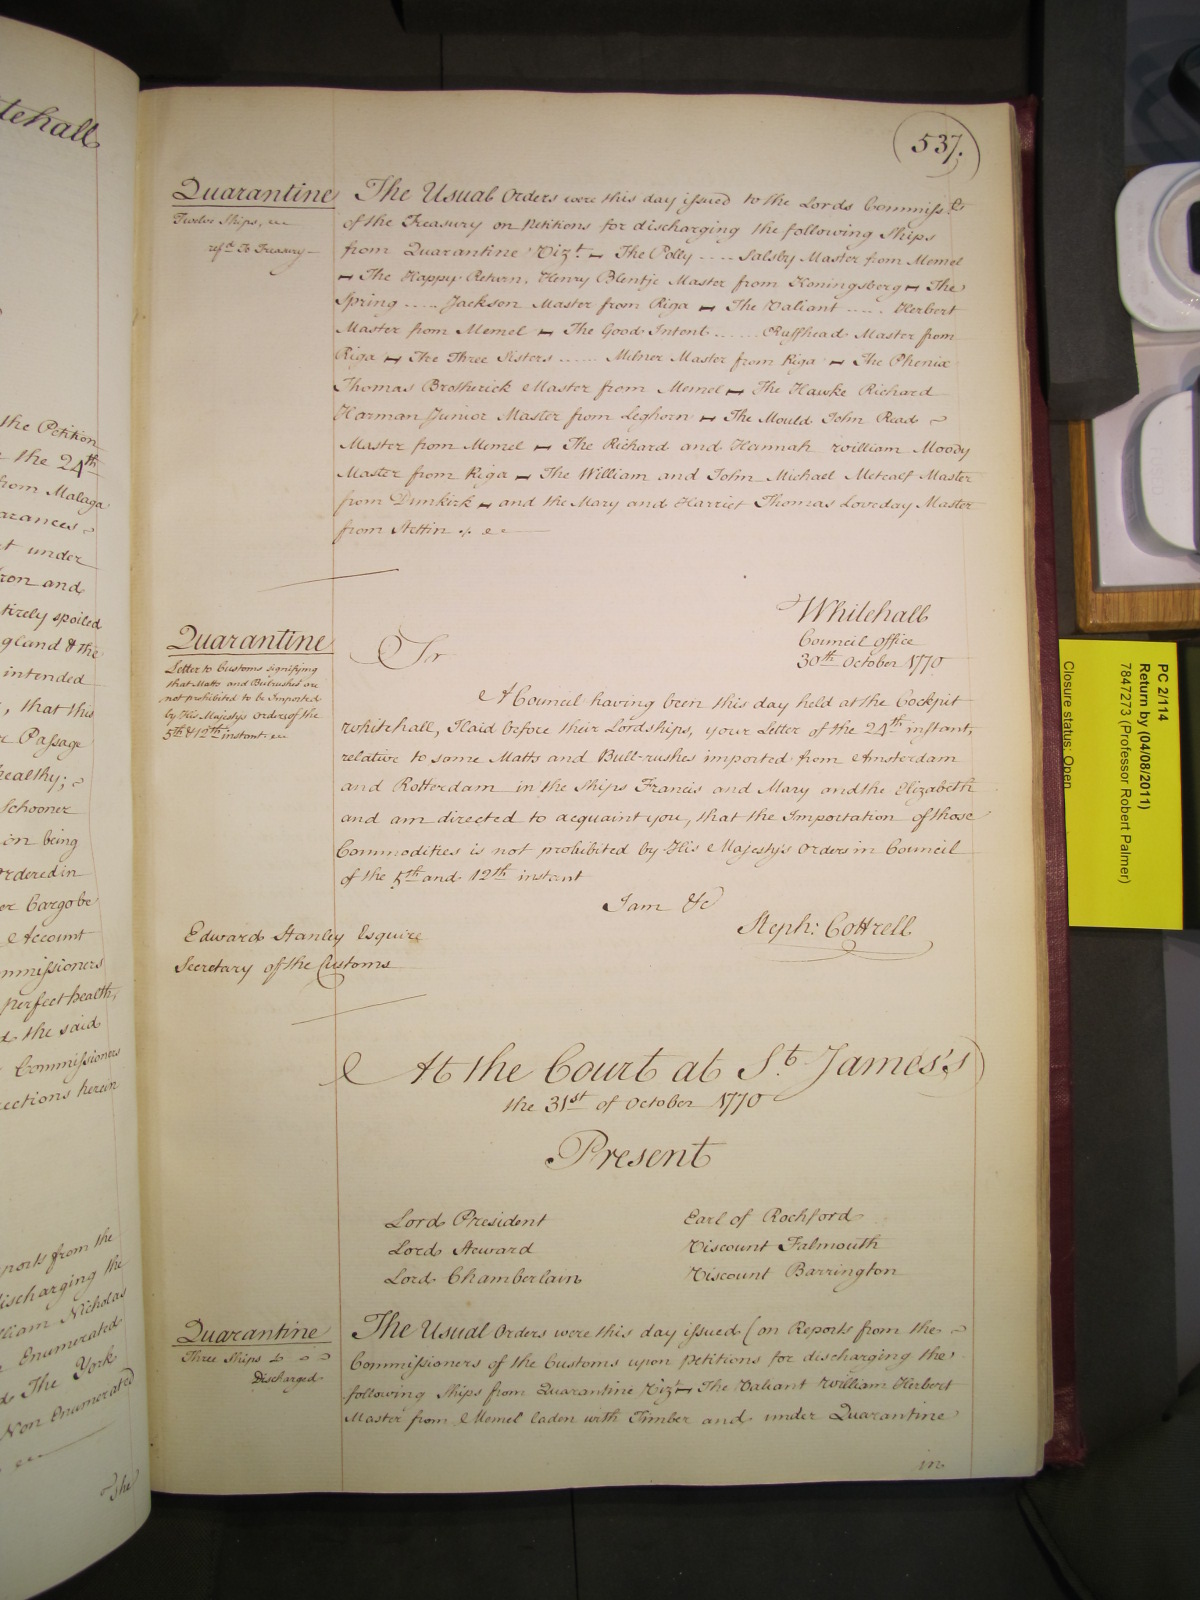 tehall
the Petition
the 24th
from Malaga
arances
t under
ron and
tirely spoiled
gland & the
intended
, that this
Passage
healthy;
Schooner
ion being
rdered in
er Cargo be
Account
mmissioners
perfect health,
the said
Commissioners
ections herein
ports from the
discharging the
lliam Nicholas
Enumerated
The York
Non Enumerated
The
537.
Quarantine
Twelve Ships,
refd. To Treasury
The Usual Orders were this day issued to the Lords Commissrs.
of the Treasury on Petitions for discharging the following Ships
from Quarantine Vizt. – The Polly .... Salsby Master from Memel
– The Happy Return, Henry Blentje Master from Koningsberg – The
Spring ..... Jackson Master from Riga – The Valiant ..... Herbert
Master from Memel – The Good Intent ...... Ruffhead Master from
Riga – The Three Sisters ...... Milner Master from Riga – The Phenix
Thomas Brotherick Master from Memel – The Hawke Richard
Harman Junior Master from Leghorn – The Mould John Read
Master from Memel – The Richard and Hannah William Moody
Master from Riga – The William and John Michael Metcalf Master
from Dunkirk – and the Mary and Harriet Thomas Loveday Master
from Stettin
Whitehall
Council Office
30th October 1770
Quarantine
Letter to Customs signifying
that Matts and Bulrushes are
not prohibited to be Imported
by His Majestys Orders of the
5th & 12th instant
Sr
A Council having been this day held at the Cockpit
Whitehall, I laid before their Lordships, your Letter of the 24th instant,
relative to some Matts and Bull-rushes imported from Amsterdam
and Rotterdam in the Ships Francis and Mary and the Elizabeth
and am directed to acquaint you, that the Importation of those
Commodities is not prohibited by His Majestys Orders in Council
of the 5th and 12th instant
I am &c
Steph: Cottrell
Edward Stanley Esquire
Secretary of the Customs
At the Court at St. James's
the 31st of October 1770
Present
Lord President
Lord Steward
Lord Chamberlain
Earl of Rochford
Viscount Falmouth
Viscount Barrington
Quarantine
Three Ships
Discharged
The Usual Orders were this day issued (on Reports from the
Commissioners of the Customs upon Petitions for discharging the
following Ships from Quarantine Vizt – The Valiant William Herbert
Master from Memel laden with Timber and under Quarantine
in
PC 2/114
Return by (04/08/2011)
7847273 (Professor Robert Palmer)
Closure status: Open